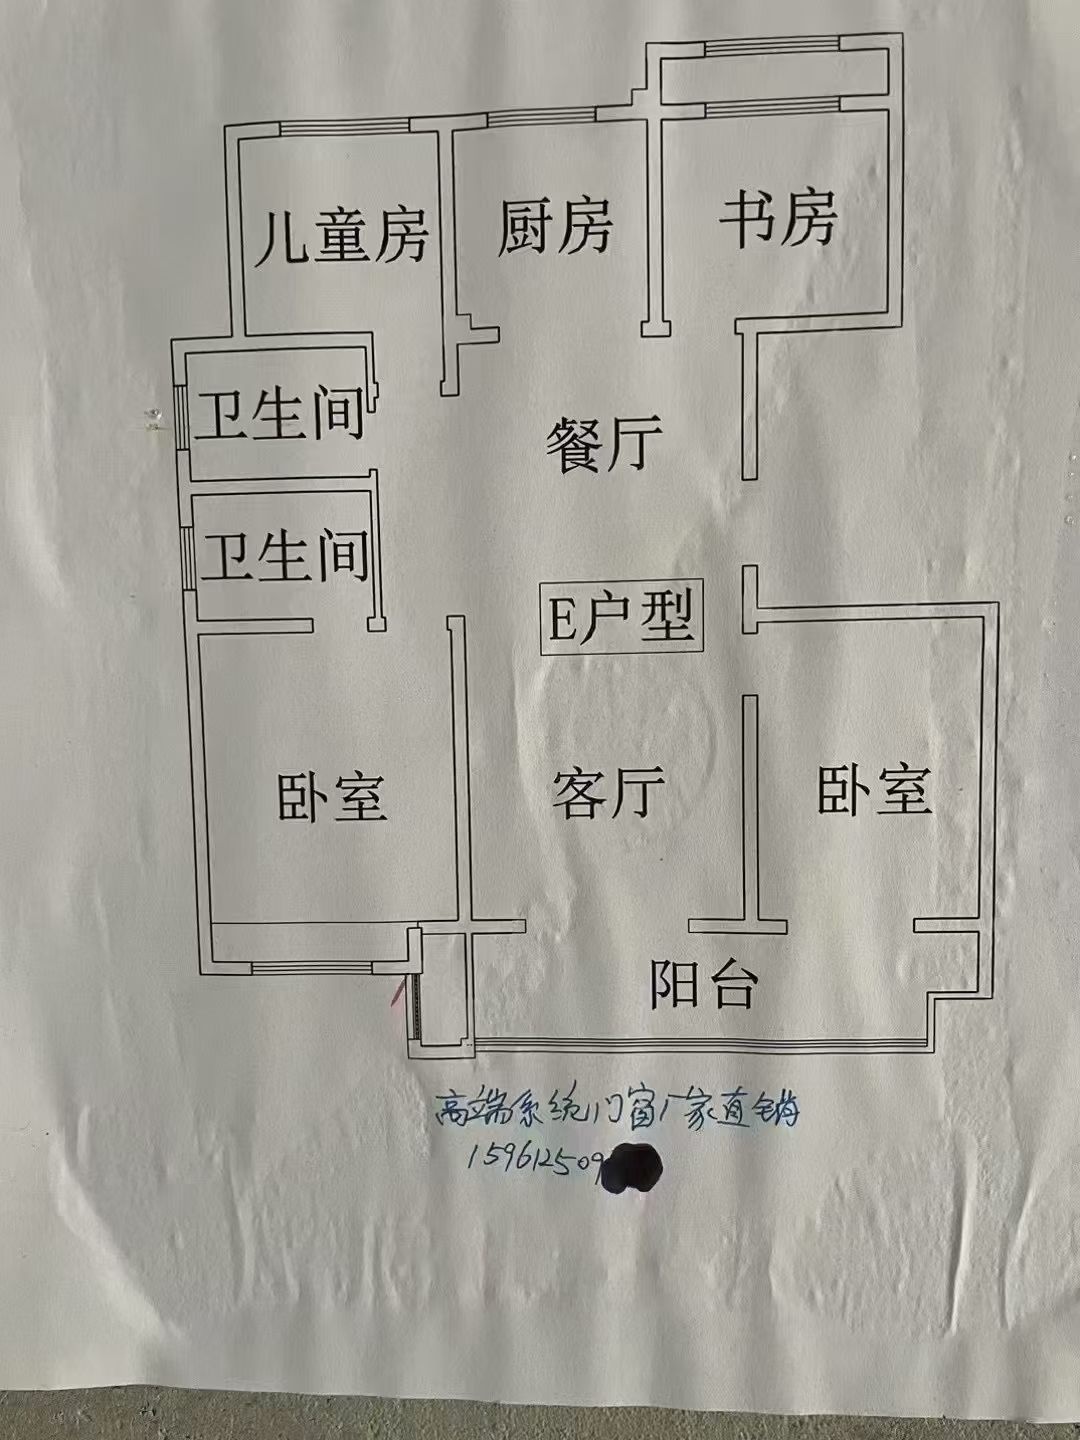 儿童房
厨房
书房
卫生间
餐厅
卫生间
E户型
卧室
客厅
卧室
阳台
高端系统门窗厂家直销
159612509